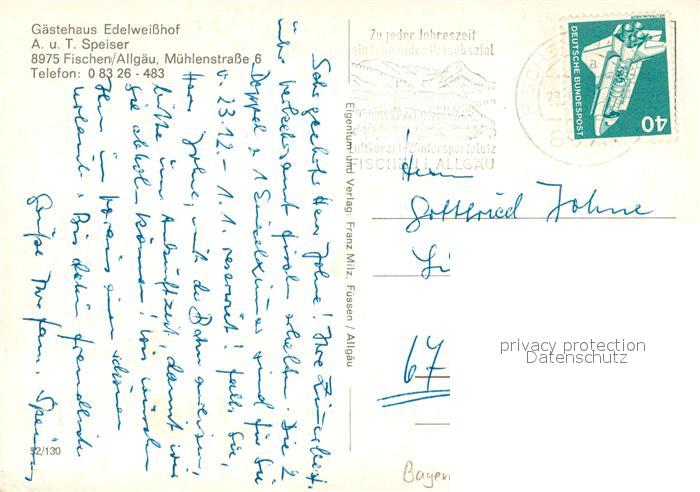 Gästehaus Edelweißhof
A. u. T. Speiser
8975 Fischen/Allgäu, Mühlenstraße 6
Telefon: 0 83 26 - 483
Sehr geehrter Herr Johne! Ihre Zimmerbest.
über Verkehrsamt Fischen erhalten. Die 2
Doppel u. 1 Einzelzimmer sind für Sie
v. 23.12. - 1.1. reserviert! Falls Sie,
Herr Johne, mit der Bahn anreisen,
bitte um Ankunftzeit, damit wir
Sie abholen können! Wir wünschen
Ihnen im voraus einen schönen
Urlaub. Bis dahin freundliche
Grüße Ihre Fam. Speiser
52/130
Eigentum und Verlag: Franz Milz, Füssen / Allgäu
Zu jeder Jahreszeit
ein lohnendes Urlaubsziel
Luftkurort-Wintersportplatz
FISCHEN i. ALLGÄU
DEUTSCHE BUNDESPOST
40
Herrn
Gottfried Johne
67
privacy protection
Datenschutz
Bayer